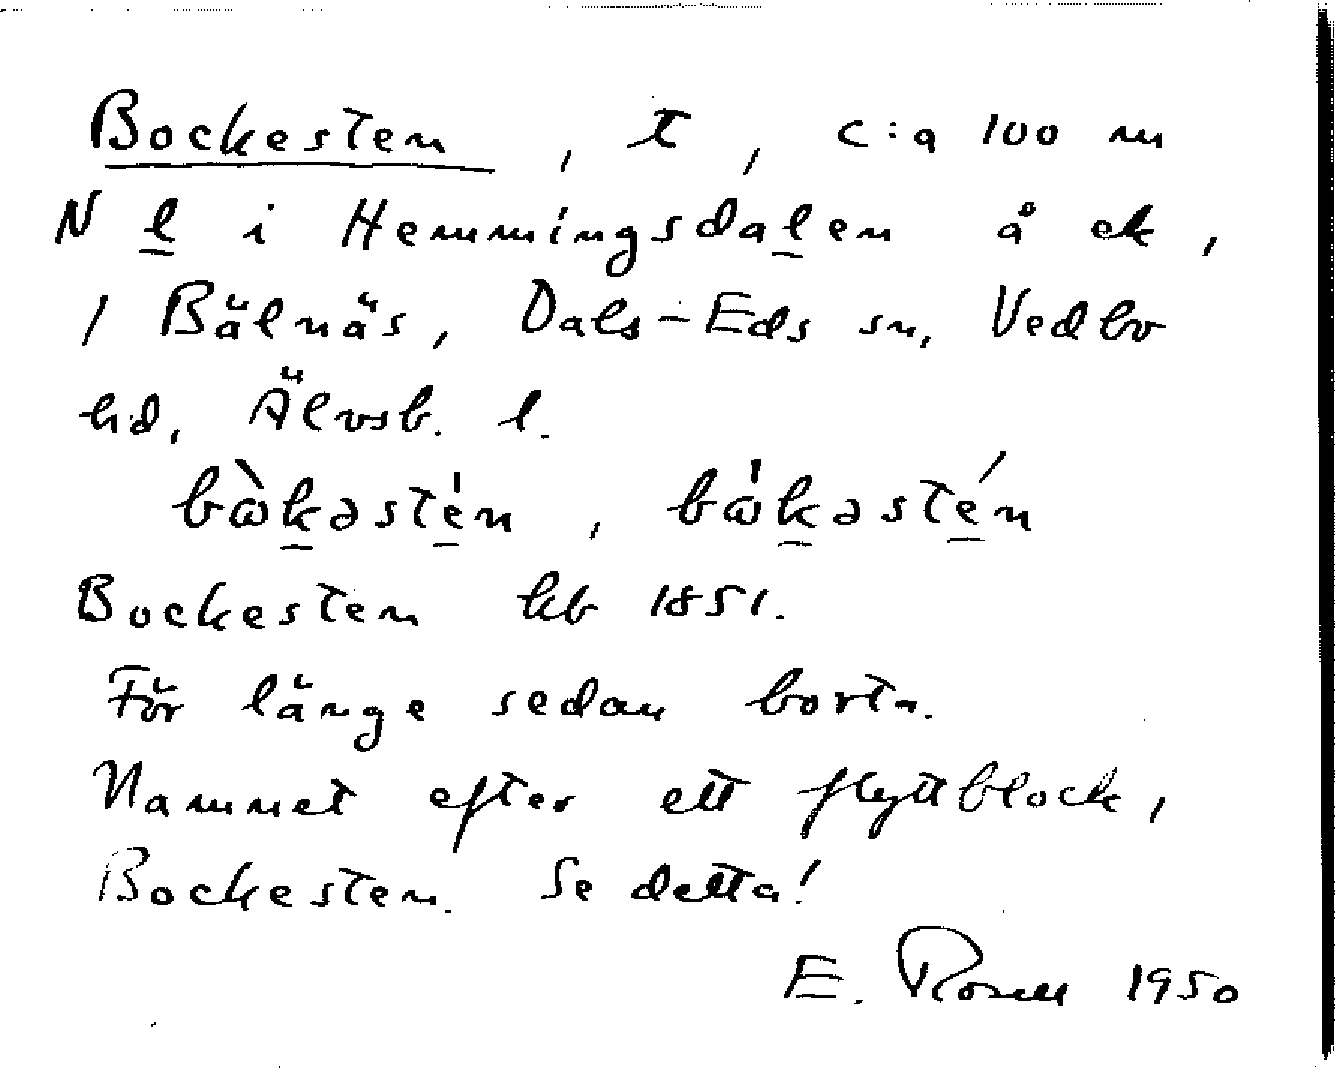 Bockesten, t, c:a 100 m
N l i Hemmingsdalen å ek,
/ Bälnäs, Dals-Eds sn, Vedbo
hd, Älvsb. l.
bɷ̀kəstén, bɷ́kəstén
Bockesten kb 1851.
För länge sedan borta.
Namnet efter ett flyttblock,
Bockesten. Se detta!
E. Rosell 1950